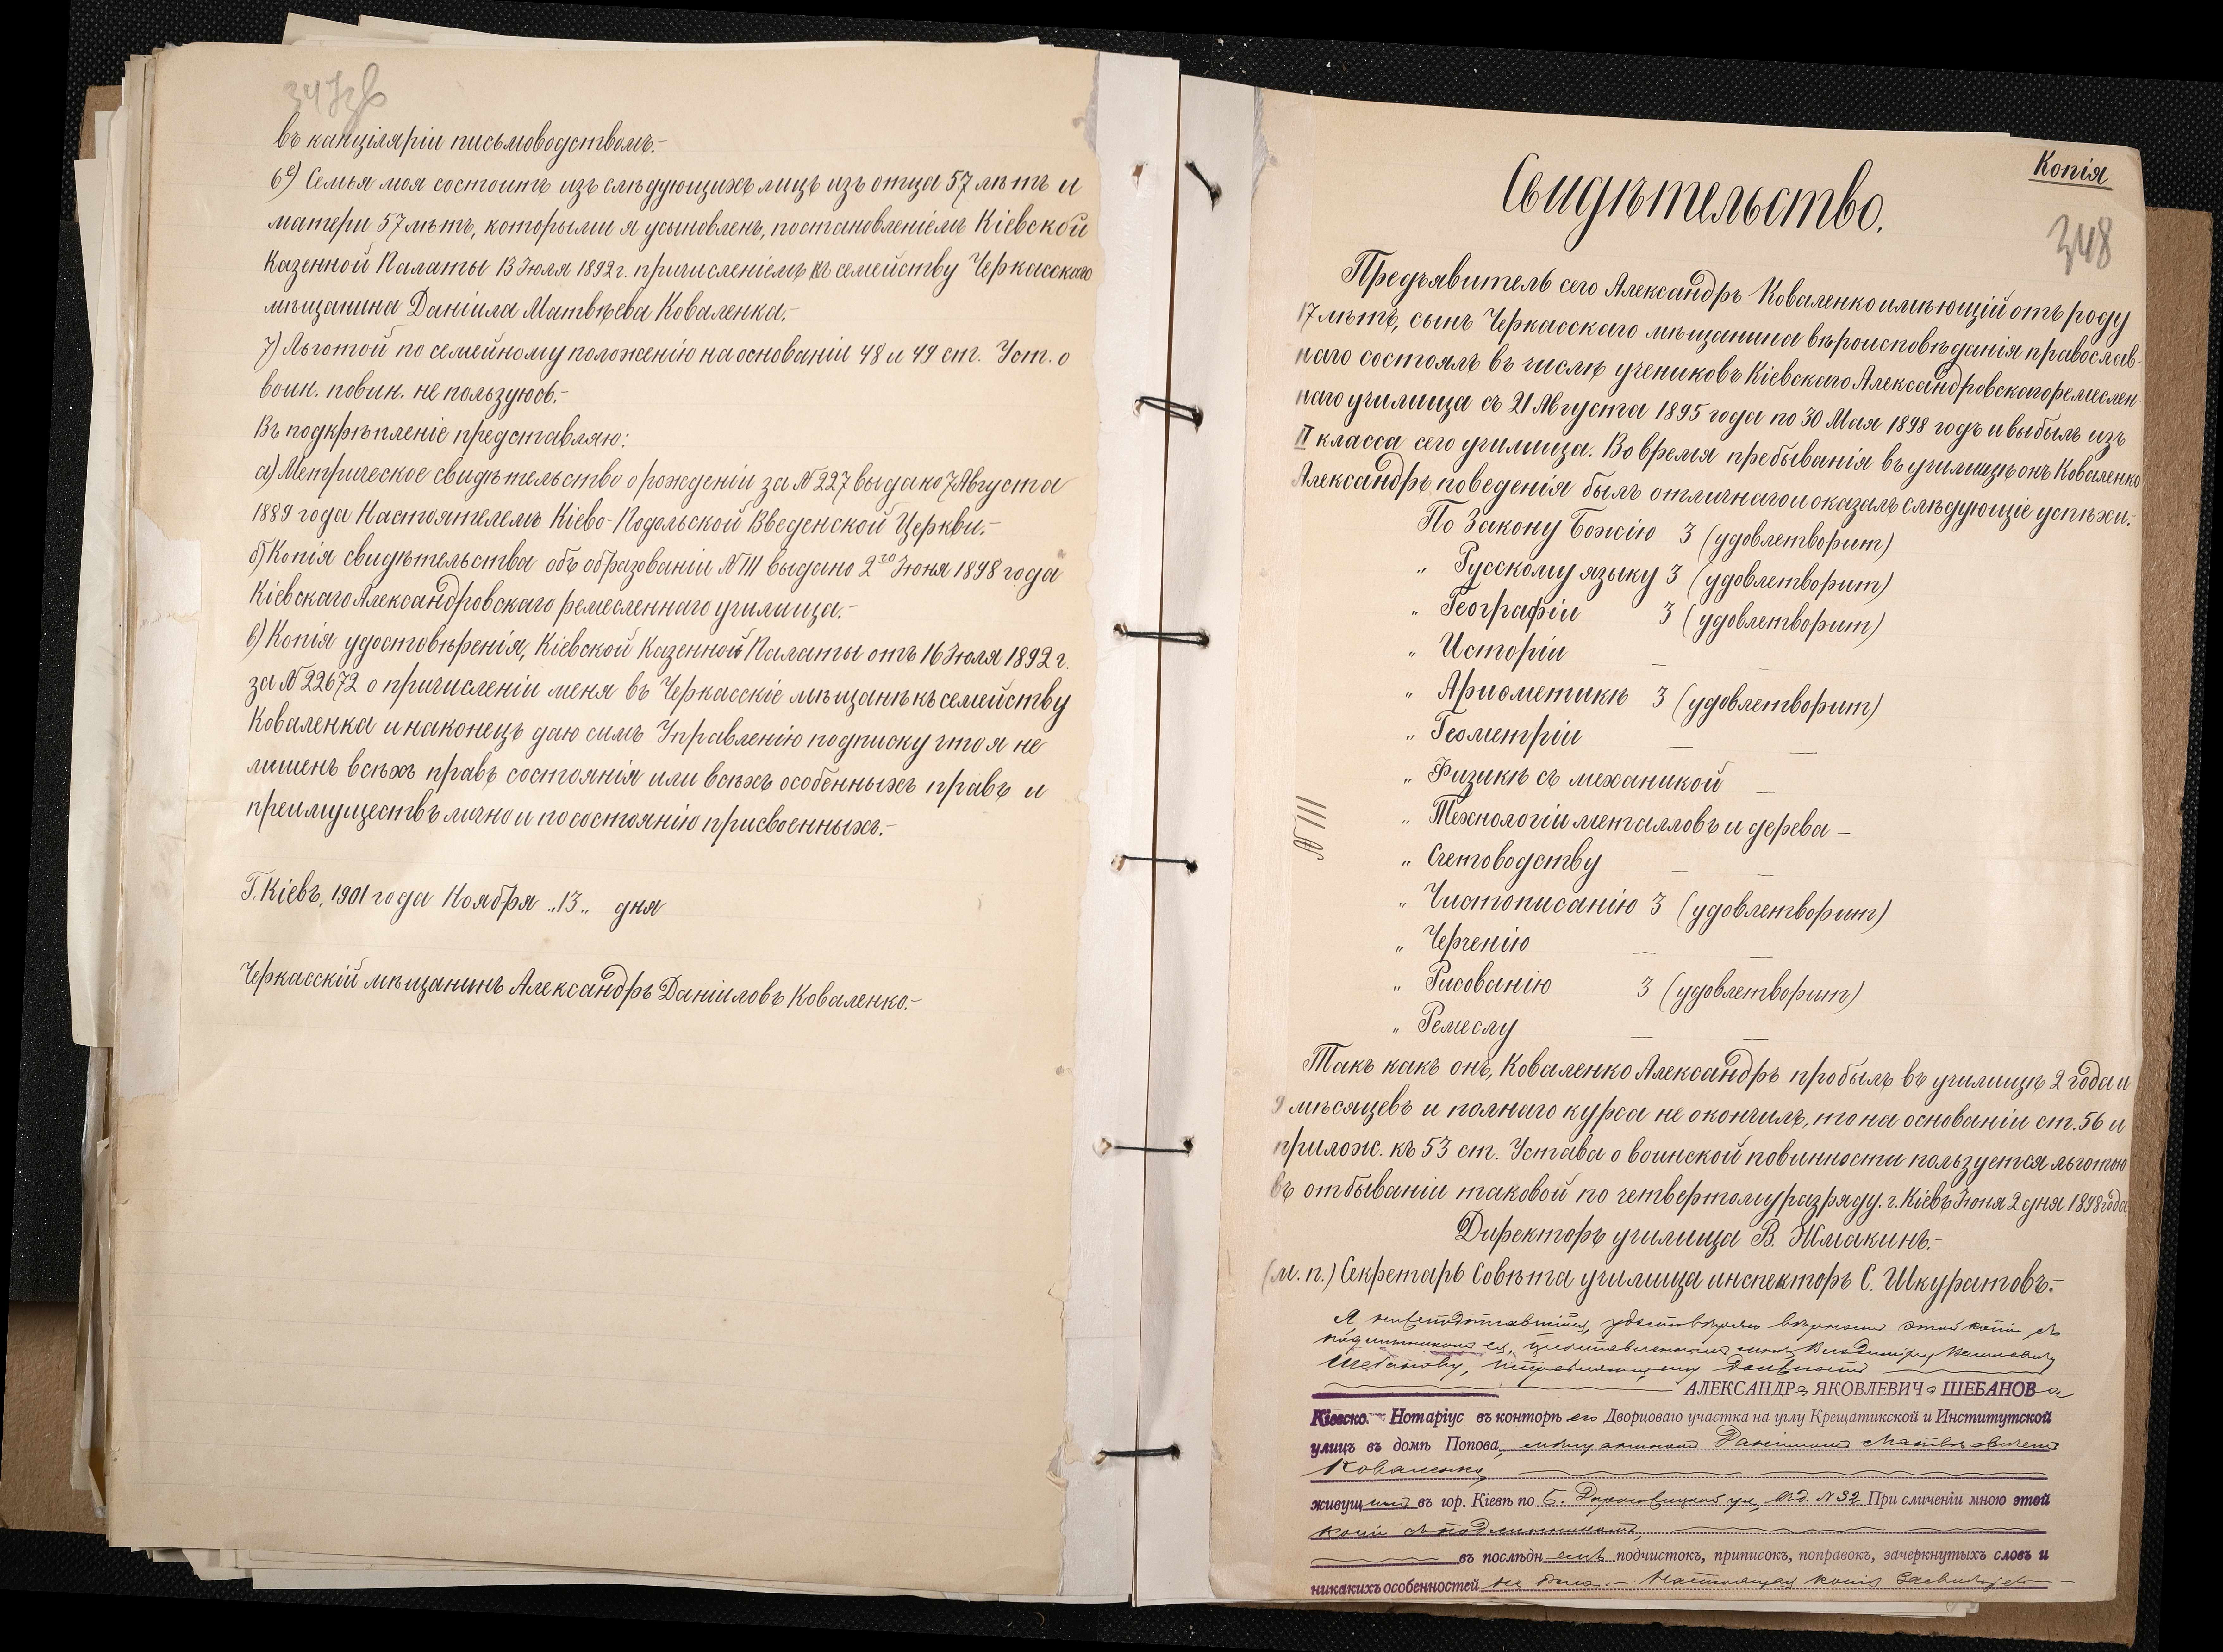 347зв
въ канціляріи письмоводствомъ.-
6е) Семья моя состоитъ изъ слѣдующихъ лицъ изъ отца 57 лѣтъ и
матери 57 лѣтъ, которыми я усыновленъ, постановленіемъ Кіевской
Казенной Палаты 13 Іюля 1892 г. причисленіемъ къ семейству Черкасскаго
мѣщанина Даніила Матвѣева Коваленка.-
7) Льготой по семейному положенію на основаніи 48 и 49 ст. Уст. о
воин. повин. не пользуюсь.-
Въ подкрѣпленіе представляю:
а) Метрическое свидѣтельство о рожденіи за № 227 выдано 7 Августа
1889 года Настоятелемъ Кіево-Подольской Введенской Церкви.-
б) Копія свидѣтельства объ образованіи № 111 выдано 2го Іюня 1898 года
Кіевскаго Александровскаго ремесленнаго училища.-
в) Копія удостовѣренія, Кіевской Казенной Палаты отъ 16 Іюля 1892 г.
за № 22672 о причисленіи меня въ Черкасскіе мѣщанѣ къ семейству
Коваленка и наконецъ даю симъ Управленію подписку что я не
лишенъ всѣхъ правъ состоянія или всѣхъ особенныхъ правъ и
преимуществъ лично и по состоянію присвоенныхъ.-
Г. Кіевъ, 1901 года Ноября „13„ дня
Черкасскій мѣщанинъ Александръ Даніиловъ Коваленко.-
Копія
348
Свидѣтельство.
Предъявитель сего Александръ Коваленко имѣющій отъ роду
17 лѣтъ, сынъ Черкасскаго мѣщанина вѣроисповѣданія православ-
наго состоялъ въ числѣ учениковъ Кіевскаго Александровскаго ремеслен-
наго училища съ 21 Августа 1895 года по 30 Мая 1898 годъ и выбылъ изъ
II класса сего училища. Во время пребыванія въ училищѣ онъ Коваленко
Александръ поведенія былъ отличнаго и оказалъ слѣдующіе успѣхи:
По Закону Божію 3 (удовлетворит)
„ Русскому языку 3 (удовлетворит)
„ Географіи 3 (удовлетворит)
„ Исторіи —
„ Ариѳметикѣ 3 (удовлетворит)
„ Геометріи — —
„ Физикѣ съ механикой —
„ Технологіи металловъ и дерева —
№ 111
„ Счетоводству — —
„ Чистописанію 3 (удовлетворит)
„ Черченію — —
„ Рисованію 3 (удовлетворит)
„ Ремеслу — —
Такъ какъ онъ, Коваленко Александръ пробылъ въ училищѣ 2 года и
9 мѣсяцевъ и полнаго курса не окончилъ, то на основаніи ст. 56 и
прилож. къ 53 ст. Устава о воинской повинности пользуется льготою
въ отбываніи таковой по четвертому разряду. г. Кіевъ Іюня 2 дня 1898 года
Директоръ училища В. Жмакинъ.-
(м. п.) Секретарь Совѣта училища инспекторъ С. Шкуратовъ.-
Я нижеподписавшійся, удостовѣряю вѣрность этой копіи съ
подлинникомъ ея, представленнымъ мнѣ Владиміру
Шебанову, исправляющему должность
АЛЕКСАНДРа ЯКОВЛЕВИЧа ШЕБАНОВа
Кіевско. Нотаріус въ конторѣ его Дворцоваго участка на углу Крещатикской и Институтской
улицъ въ домѣ Попова, мѣщаниномъ Даніиломъ Матвѣевичемъ
Коваленко,
живущимъ въ гор. Кіевѣ по Б. Дорогожицкой ул, въ д. № 32. При сличеніи мною этой
копіи съ подлинникомъ,
въ послѣдн емъ подчистокъ, приписокъ, поправокъ, зачеркнутыхъ словъ и
никакихъ особенностей не было.- Настоящая копія